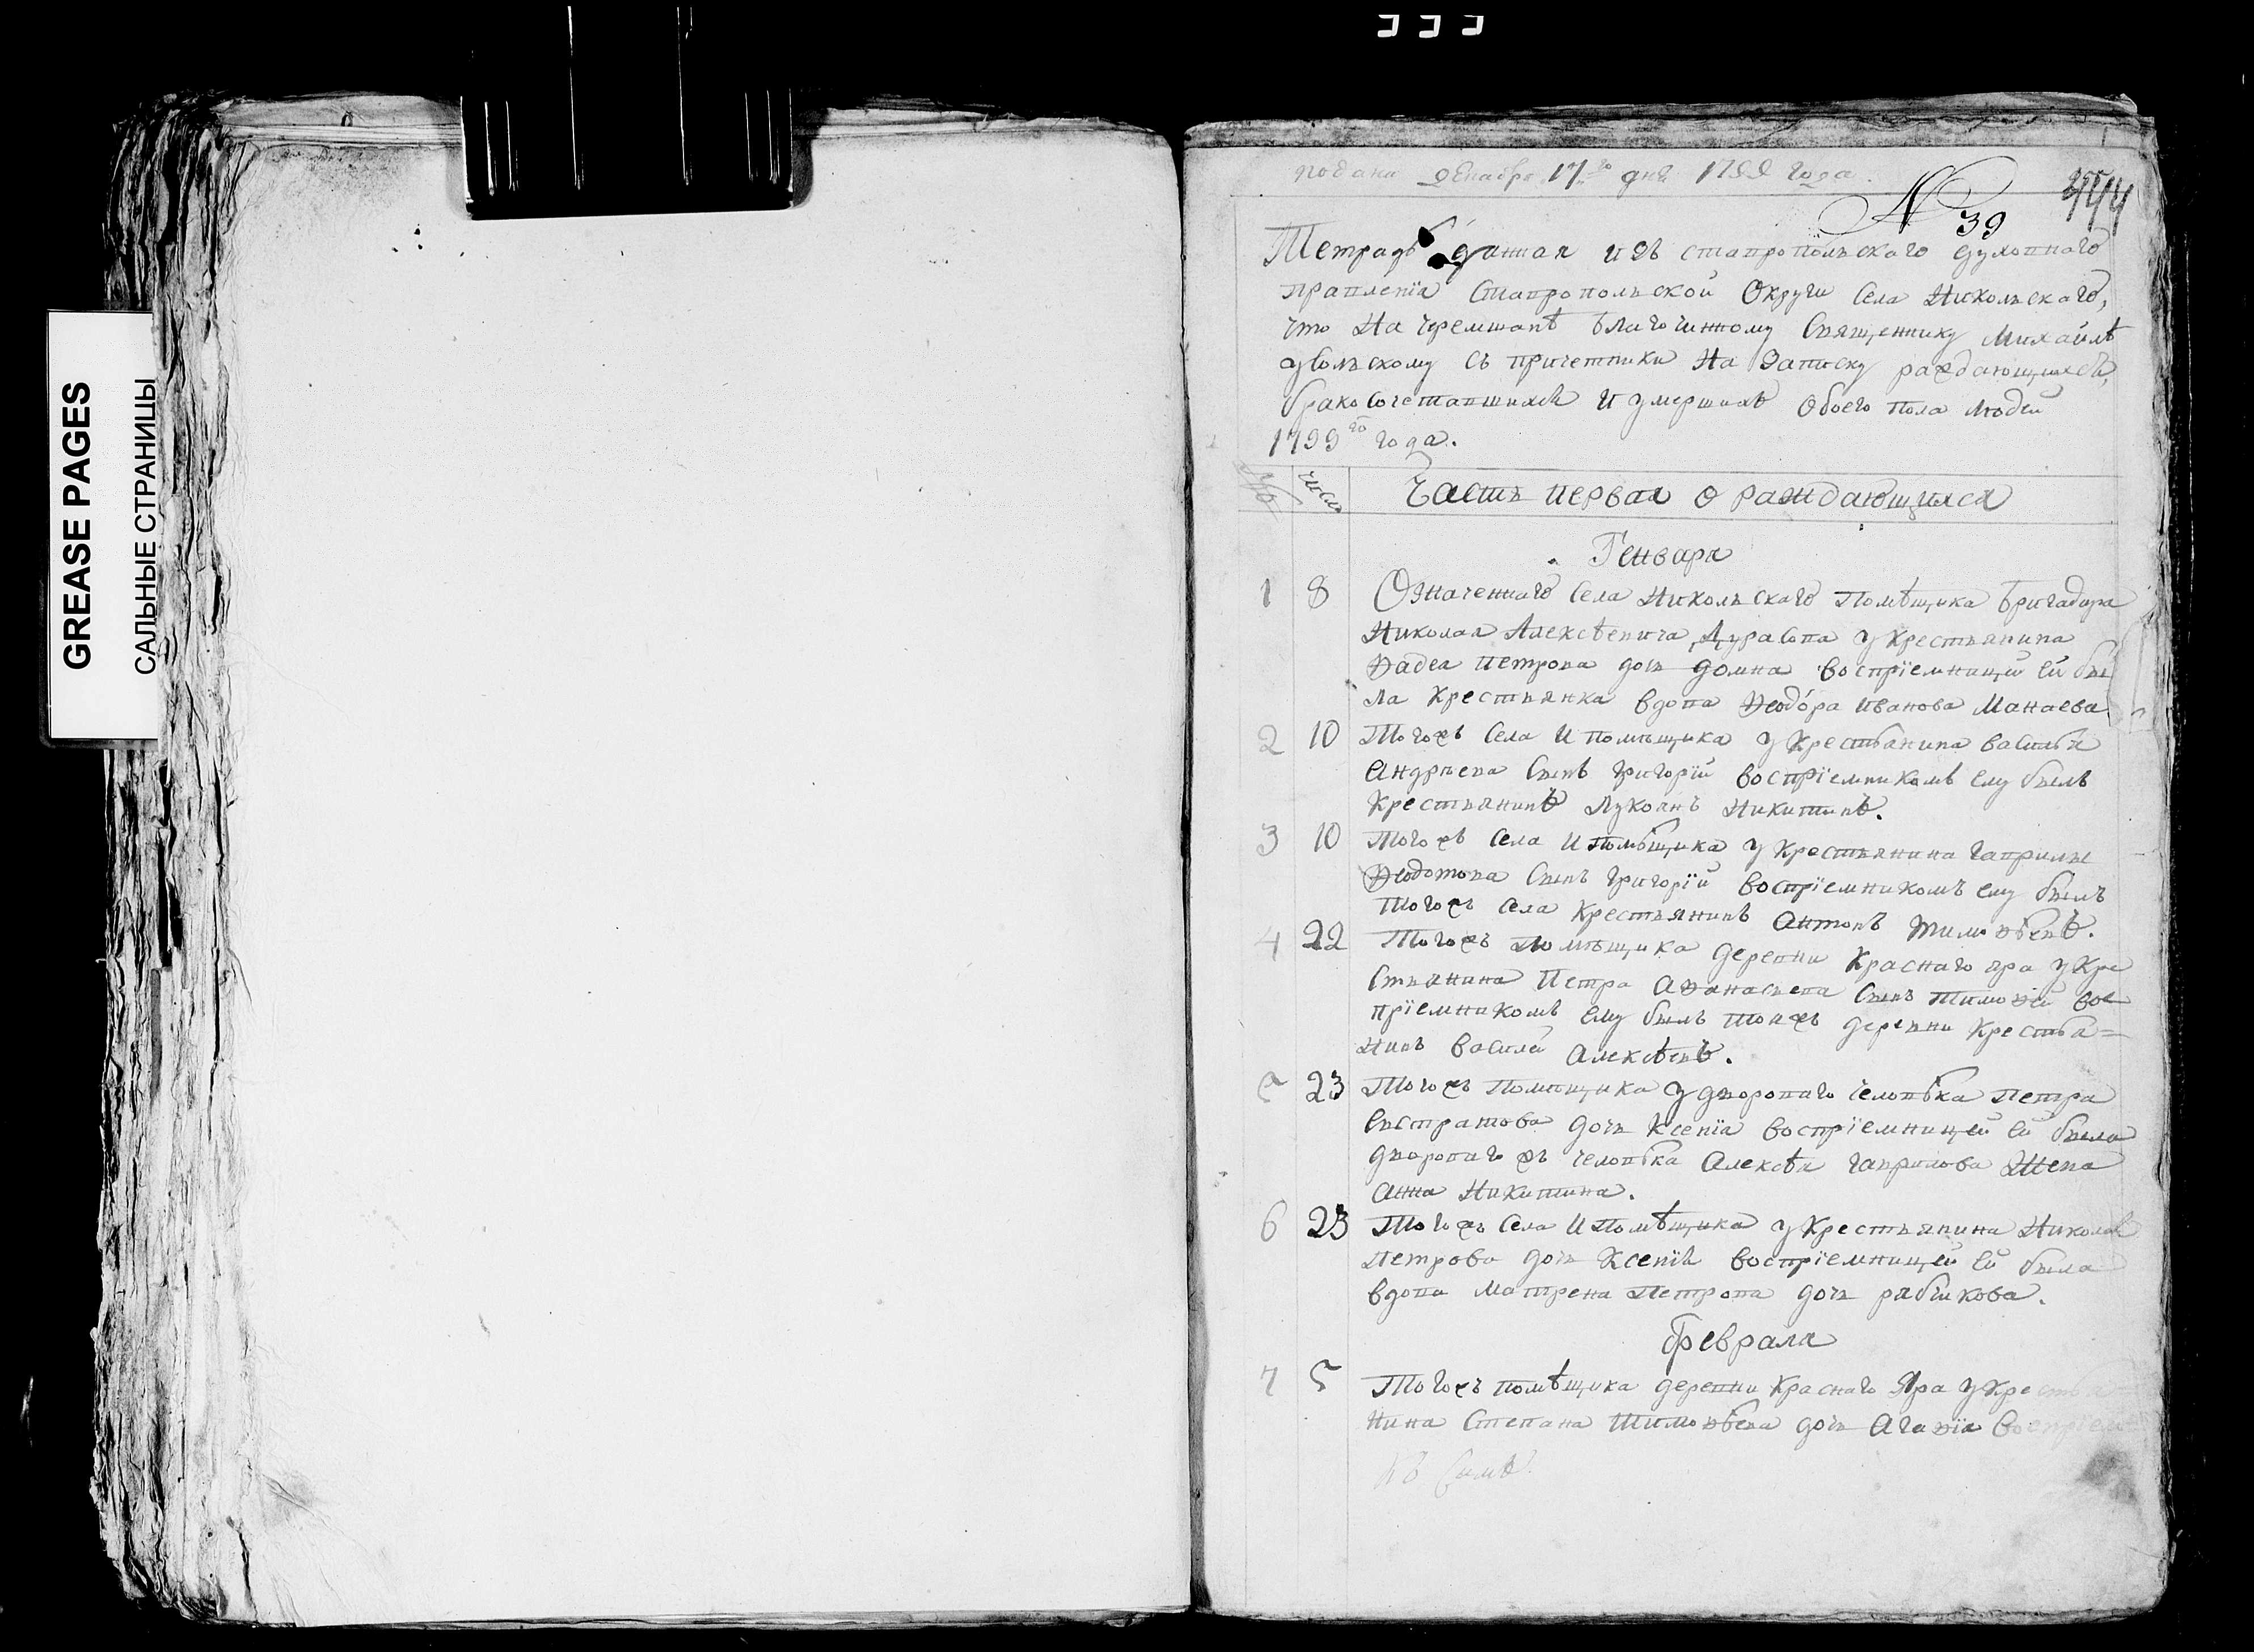 GREASE PAGES
САЛЬНЫЕ СТРАНИЦЫ
подана декабря 17го дня 1799 года.
№ 39
444
Тетрадь данная изъ ставропольскаго духовнаго
правленїя Ставропольской Округи Села Никольскаго,
что На Черемшанѣ благочинному Священнику Михайлѣ
съ причетники На Записку раждающихся,
бракосочетавшихся И умершихъ Обоего пола людей
1799го года.
№ число Часть первая о раждающихся
Генваря
1 8 Означеннаго Села Никольскаго Помѣщика бригадира
Николая Алексѣевича Дурасова у Крестьянина
Ѳадея петрова дочь домна воспрїемницей ей бы
ла Крестьянка вдова Ѳеодора иванова Манаева
2 10 Тогожъ Села И помѣщика у Крестьянина васильи
Андрѣева Сынъ григорїй воспрїемникомъ ему былъ
Крестьянинъ Лукоянъ Никитинъ.
3 10 Тогожъ Села И помѣщика у Крестьянина гаврилы
Ѳеодотова Сынъ григорїй воспрїемникомъ ему былъ
Тогожъ Села Крестьянинъ антонъ Тимоѳѣевъ.
4 22 Тогожъ Помѣщика деревни Краснаго яра у Кре
стьянина Петра аѳанасьева Сынъ Тимоѳей вос
прїемникомъ ему былъ тояжъ деревни Крестья=
нинъ василей алексѣевъ.
5 23 Тогожъ Помѣщика у двороваго человѣка петра
евстратова дочь Ксенїа воспрїемницей ей была
двороваго жъ человѣка алексѣя гаврилова Жена
анна Никитина.
6 23 Тогожъ Села И Помѣщика у Крестьянина Николая
Петрова дочь Ксенїя воспрїемницей ей была
вдова матрена Петрова дочь рябчикова.
Февраля
7 5 Тогожъ помѣщика деревни Краснаго Яра у Кресть
нина Степана Тимоѳѣева дочь агаѳїа воспрїем